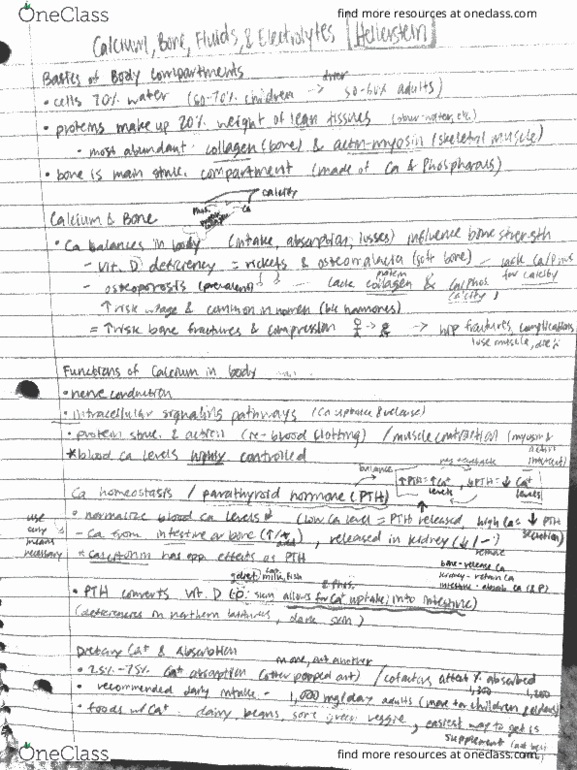 OneClass
find more resources at oneclass.com
Calcium, Bone, Fluids, & Electrolytes [Hellerstein]
Basics of Body Compartments
• cells 70% water (60-70% children → 50-60% adults)
• proteins make up 20% weight of lean tissues (other-water, etc.)
• most abundant: collagen (bone) & actin-myosin (skeletal muscle)
• bone is main struc. compartment (made of Ca & Phosphorus)
calcify
Ca
Calcium & Bone
• Ca balances in body (intake, absorption, losses) influence bone strength
- vit. D deficiency = rickets & osteomalacia (soft bone) - lack Ca/Phos for calcify
- osteoporosis (prevalent) lack protein collagen & Ca/phos calcify
↑ risk w/age & common in women (b/c hormones)
= ↑ risk bone fractures & compression → → hip fractures, complications,
lose muscle, die
Functions of Calcium in body
• nerve conduction
• intracellular signaling pathways (Ca uptake & release)
• protein struc. & action (re-blood clotting) / muscle contraction (myosin & actin interact)
* blood ca levels highly controlled
balance
↑ PTH = ↑ Ca⁺ levels, ↓ PTH = ↓ Ca⁺ levels
Ca homeostasis / parathyroid hormone (PTH)
• normalize blood Ca levels (low Ca level = PTH released, high Ca = ↓ PTH secretion)
use any means necessary
- Ca from intestine or bone, released in kidney
* calcitonin has opp. effects as PTH
bone - release Ca
kidney - retain Ca
intestine - absorb Ca (& P)
milk, fish
& Phos.
• PTH converts vit. D (D: sun) allows for Ca⁺ uptake into intestine)
(deficiencies in northern latitudes, dark skin)
Dietary Ca⁺ & Absorption
more, not another
• 25% - 75% Ca⁺ absorption (other pooped out) / cofactors affect % absorbed
1,300 1,200
• recommended daily intake - 1,000 mg/day adults (more for children & elders)
• foods w/ Ca⁺ - dairy, beans, some green veggie, easiest way to get is
supplement (not
OneClass
find more resources at oneclass.com